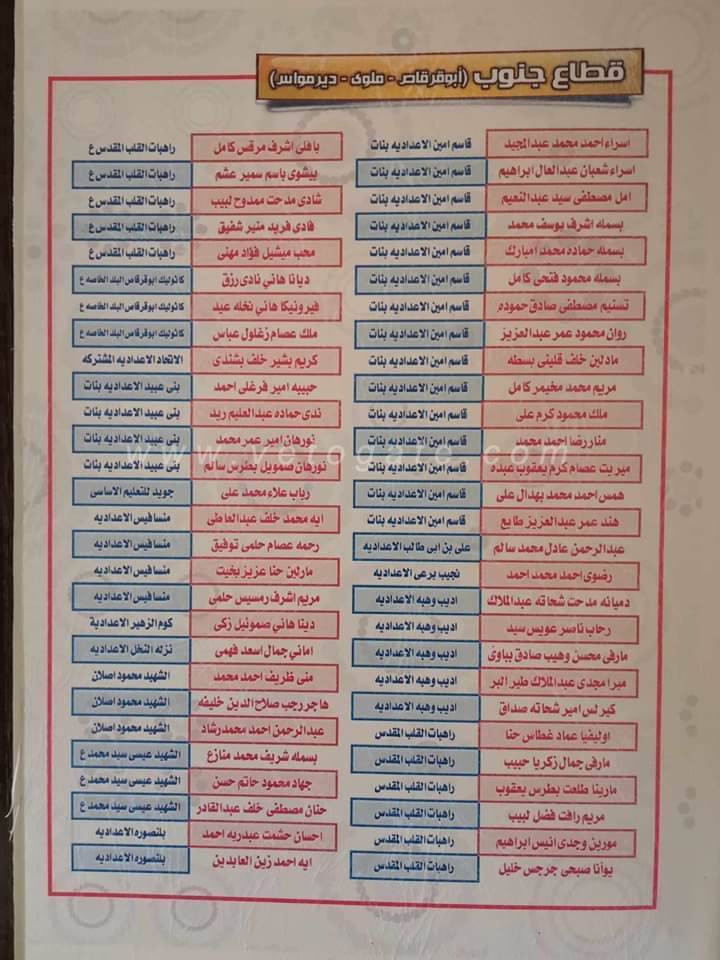 قطاع جنوب (أبوقرقاص - ملوى - ديرمواس)
اسراء احمد محمد عبدالمجيد قاسم امين الاعداديه بنات
اسراء شعبان عبدالعال ابراهيم قاسم امين الاعداديه بنات
امل مصطفى سيد عبدالنعيم قاسم امين الاعداديه بنات
بسمله اشرف يوسف محمد قاسم امين الاعداديه بنات
بسمله حماده محمد امبارك قاسم امين الاعداديه بنات
بسمله محمود فتحى كامل قاسم امين الاعداديه بنات
تسنيم مصطفى صادق حموده قاسم امين الاعداديه بنات
روان محمود عمر عبدالعزيز قاسم امين الاعداديه بنات
مادلين خلف قلينى بسطه قاسم امين الاعداديه بنات
مريم محمد مخيمر كامل قاسم امين الاعداديه بنات
ملك محمود كرم على قاسم امين الاعداديه بنات
منار رضا احمد محمد قاسم امين الاعداديه بنات
ميريت عصام كرم يعقوب عبده قاسم امين الاعداديه بنات
همس احمد محمد بهدال على قاسم امين الاعداديه بنات
هند عمر عبدالعزيز طايع قاسم امين الاعداديه بنات
عبدالرحمن عادل محمد سالم على بن ابى طالب الاعداديه
رضوى احمد محمد احمد نجيب برعى الاعداديه
دميانه مدحت شحاته عبدالملاك اديب وهبه الاعداديه
رحاب ناصر عويس سيد اديب وهبه الاعداديه
مارفى محسن وهيب صادق بباوى اديب وهبه الاعداديه
ميرا مجدى عبدالملاك طير البر اديب وهبه الاعداديه
كيرلس امير شحاته صداق اديب وهبه الاعداديه
اوليفيا عماد غطاس حنا راهبات القلب المقدس
مارفى جمال زكريا حبيب راهبات القلب المقدس
مارينا طلعت بطرس يعقوب راهبات القلب المقدس
مريم رافت فضل لبيب راهبات القلب المقدس
مورين وجدى انيس ابراهيم راهبات القلب المقدس
يوأنا صبحى جرجس خليل راهبات القلب المقدس
باهلى اشرف مرقس كامل راهبات القلب المقدس ع
بيشوى باسم سمير عشم راهبات القلب المقدس ع
شادى مدحت ممدوح لبيب راهبات القلب المقدس ع
فادى فريد منير شفيق راهبات القلب المقدس ع
محب ميشيل فؤاد مهنى راهبات القلب المقدس ع
ديانا هاني نادى رزق كاثوليك ابوقرقاص البلد الخاصه ع
فيرونيكا هاني نخله عيد كاثوليك ابوقرقاص البلد الخاصه ع
ملك عصام زغلول عباس كاثوليك ابوقرقاص البلد الخاصه ع
كريم بشير خلف بشندى الاتحاد الاعداديه المشتركه
حبيبه امير فرغلى احمد بنى عبيد الاعداديه بنات
ندى حماده عبدالعليم ريد بنى عبيد الاعداديه بنات
نورهان امير عمر محمد بنى عبيد الاعداديه بنات
نورهان صمويل بطرس سالم بنى عبيد الاعداديه بنات
رباب علاء محمد على جويد للتعليم الاساسى
ايه محمد خلف عبدالعاطى منسافيس الاعداديه
رحمه عصام حلمى توفيق منسافيس الاعداديه
مارلين حنا عزيز بخيت منسافيس الاعداديه
مريم اشرف رمسيس حلمى منسافيس الاعداديه
دينا هاني صموئيل زكى كوم الزهير الاعدادية
اماني جمال اسعد فهمى نزله النخل الاعداديه
منى ظريف احمد محمد الشهيد محمود اصلان
هاجر رجب صلاح الدين خليفه الشهيد محمود اصلان
عبدالرحمن احمد محمد رشاد الشهيد محمود اصلان
بسمله شريف محمد منازع الشهيد عيسى سيد محمد ع
جهاد محمود حاتم حسن الشهيد عيسى سيد محمد ع
حنان مصطفى خلف عبدالقادر الشهيد عيسى سيد محمد ع
احسان حشمت عبدربه احمد بلنصوره الاعداديه
ايه احمد زين العابدين بلنصوره الاعداديه
www.vetogate.com